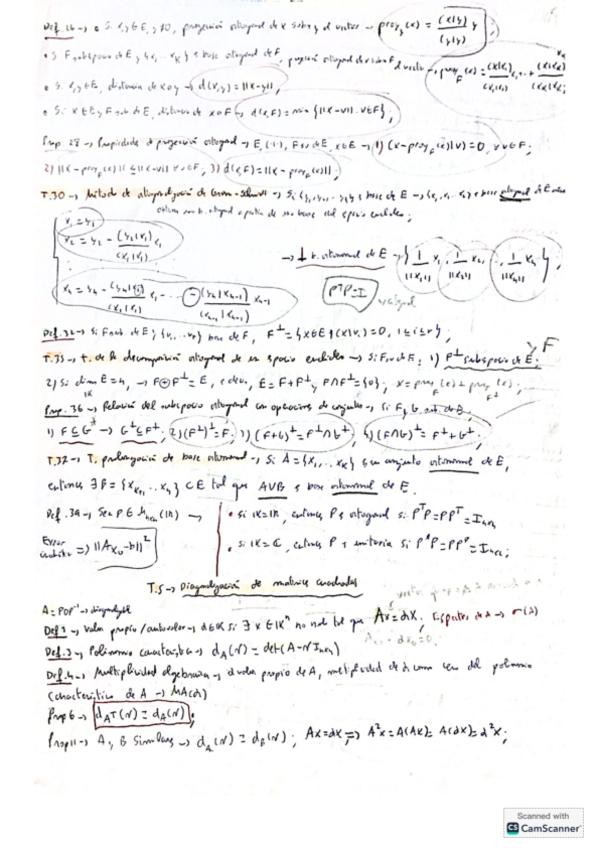 Def. 26 → • Si x,y∈E, y≠0, proyección ortogonal de x sobre y al vector → proy_y(x) = (x|y)/(y|y) y
• Si F subespacio de E y {x₁ ... x_K} base ortogonal de F, proyección ortogonal de x sobre F al vector → proy_F(x) = (x|x₁)/(x₁|x₁) x₁ + ... + (x|x_K)/(x_K|x_K) x_K;
• Si x,y∈E, distancia de x a y → d(x,y) = ||x-y||;
• Si x∈E y F sub. de E, distancia de x a F → d(x,F) = min {||x-v||: v∈F};
Prop. 28 → Propiedades de proyección ortogonal → E, (·|·), F sv de E, x∈E → 1) (x-proy_F(x)|v) = 0, ∀v∈F;
2) ||x-proy_F(x)|| ≤ ||x-v|| ∀v∈F, 3) d(x,F) = ||x-proy_F(x)||;
T.30 → Método de ortogonalización de Gram-Schmidt → Si {y₁, y₂, ... y_n} base de E → {x₁, x₂ ... x_n} base ortogonal de E
x₁ = y₁
x₂ = y₂ - (y₂|x₁)/(x₁|x₁) x₁
x_n = y_n - (y_n|x₁)/(x₁|x₁) x₁ - ... - (y_n|x_{n-1})/(x_{n-1}|x_{n-1}) x_{n-1}
→ b. ortonormal de E → {1/||x₁|| x₁, 1/||x₂|| x₂, ..., 1/||x_n|| x_n};
PᵀP=I
Def. 32 → Si F sub. de E y {v₁ ... v_r} base de F, F^⊥ = {x∈E: (x|v_i)=0, 1≤i≤r};
T.33 → t. de la descomposición ortogonal de un espacio euclídeo → Si F sv de E: 1) F^⊥ subespacio de E;
2) Si dim E = n, → F⊕F^⊥ = E, es decir, E = F+F^⊥ y F∩F^⊥ = {0}; x = proy_F(x) + proy_F^⊥(x);
Prop. 36 → Relación del subespacio ortogonal con operaciones de conjuntos → Si F y G sub. de E:
1) F⊆G → G^⊥⊆F^⊥; 2) (F^⊥)^⊥ = F; 3) (F+G)^⊥ = F^⊥∩G^⊥; 4) (F∩G)^⊥ = F^⊥+G^⊥;
T.37 → T. prolongación de base ortonormal → Si A = {x₁, ... x_K} es un conjunto ortonormal de E,
entonces ∃ B = {x_{K+1} ... x_n} ⊂ E tal que A∪B es base ortonormal de E.
Def. 39 → Sea P∈M_{n×n}(K) → • si K=ℝ, entonces P es ortogonal si PᵀP=PPᵀ=I_{n×n}
Error cuadrático → ||Ax₀-b||²
• si K=ℂ, entonces P es unitaria si P*P=PP*=I_{n×n};
T.5 → Diagonalización de matrices cuadradas
A = PDP⁻¹ → diagonalizable
Def 1 → Valor propio / autovalor → λ∈K si ∃ x∈Kⁿ no nulo tal que Ax=λx. Espectro de A → σ(A)
Def. 3 → Polinomio característico → d_A(λ) = det(A-λI_{n×n})
Def. 4 → Multiplicidad algebraica → λ valor propio de A, multiplicidad de λ como cero del polinomio
característico de A → MA(λ)
Prop 6 → d_{Aᵀ}(λ) = d_A(λ);
Prop 11 → A y B similares → d_A(λ) = d_B(λ); Ax=λx ⇒ A²x = A(Ax) = A(λx) = λ²x;
Scanned with
CS CamScanner